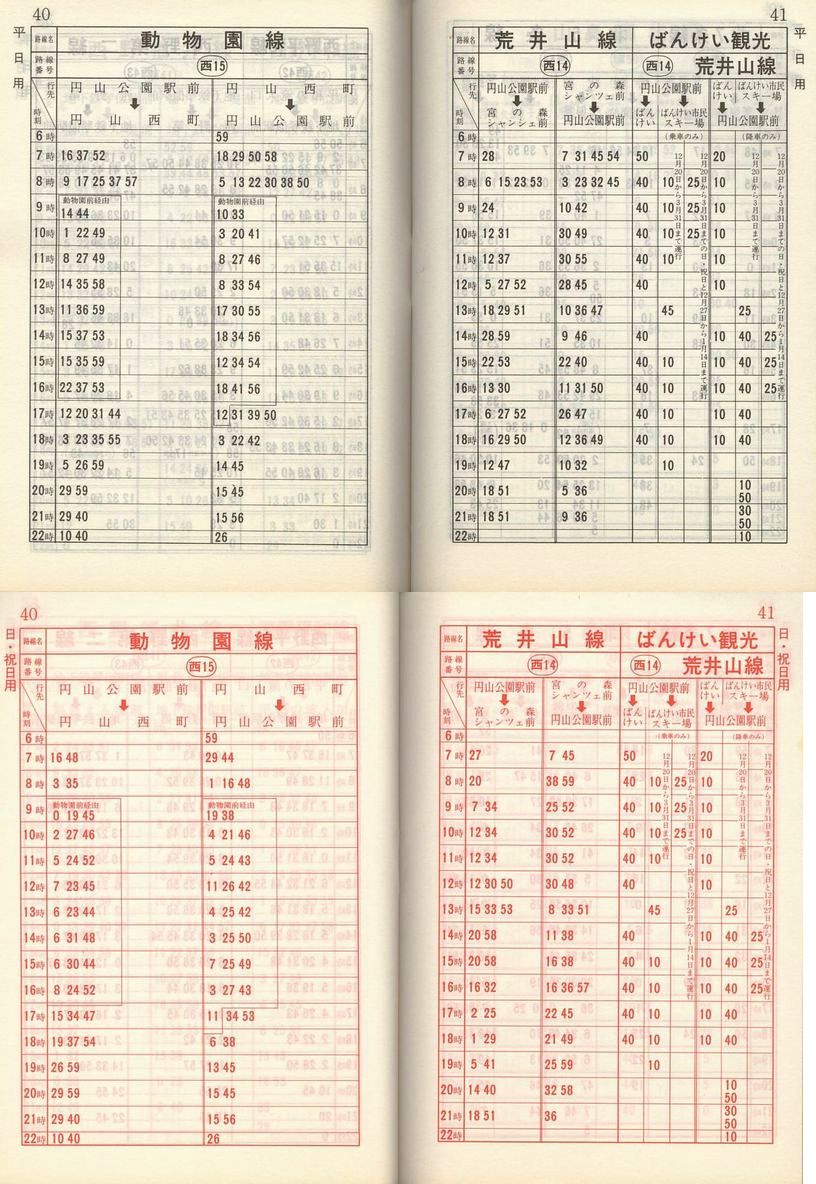 40
平日用
路線名 動物園線
路線番号 西15
行先 円山公園駅前 円山西町
時刻 円山西町 円山公園駅前
6時 59
7時 16 37 52 18 29 50 58
8時 9 17 25 37 57 5 13 22 30 38 50
動物園前経由 動物園前経由
9時 14 44 10 33
10時 1 22 49 3 20 41
11時 8 27 49 8 27 46
12時 14 35 58 8 33 54
13時 11 36 59 17 30 55
14時 15 37 53 18 34 56
15時 15 35 59 12 34 54
16時 22 37 53 18 41 56
17時 12 20 31 44 12 31 39 50
18時 3 23 35 55 3 22 42
19時 5 26 59 14 45
20時 29 59 15 45
21時 29 40 15 56
22時 10 40 26
41
平日用
路線名 荒井山線 ばんけい観光
路線番号 西14 西14 荒井山線
行先 円山公園駅前 宮の森シャンツェ前 円山公園駅前 ばんけい ばんけい市民スキー場
時刻 宮の森シャンツェ前 円山公園駅前 ばんけい ばんけい市民スキー場 円山公園駅前
6時 (乗車のみ) (降車のみ)
7時 28 7 31 45 54 50 20
8時 6 15 23 53 3 23 32 45 40 10 25 10
9時 24 10 42 40 10 25 10
10時 12 31 30 49 40 10 25 10
11時 12 37 30 55 40 10 10
12時 5 27 52 28 45 40 10
13時 18 29 51 10 36 47 45 25
14時 28 59 9 46 40 10 40 25
15時 22 53 22 40 40 10 10 40 25
16時 13 30 11 31 50 40 10 10 40 25
17時 6 27 52 26 47 40 10 10 40
18時 16 29 50 12 36 49 40 10 10 40
19時 12 47 10 32 10
20時 18 51 5 36 10 50
21時 18 51 9 36 30 50
22時 10
12月20日から3月31日まで運行
12月20日から3月31日までの日・祝日と12月27日から1月14日まで運行
12月20日から3月31日まで運行
12月20日から3月31日までの日・祝日と12月27日から1月14日まで運行
40
日・祝日用
路線名 動物園線
路線番号 西15
行先 円山公園駅前 円山西町
時刻 円山西町 円山公園駅前
6時 59
7時 16 48 29 44
8時 3 35 1 16 48
動物園前経由 動物園前経由
9時 0 19 45 19 38
10時 2 27 46 4 21 46
11時 5 24 52 5 24 43
12時 7 23 45 11 26 42
13時 6 23 44 4 25 42
14時 6 31 48 3 25 50
15時 6 30 44 7 25 49
16時 8 24 52 3 27 43
17時 15 34 47 11 34 53
18時 19 37 54 6 38
19時 26 59 13 45
20時 29 59 15 45
21時 29 40 15 56
22時 10 40 26
41
日・祝日用
路線名 荒井山線 ばんけい観光
路線番号 西14 西14 荒井山線
行先 円山公園駅前 宮の森シャンツェ前 円山公園駅前 ばんけい ばんけい市民スキー場
時刻 宮の森シャンツェ前 円山公園駅前 ばんけい ばんけい市民スキー場 円山公園駅前
6時 (乗車のみ) (降車のみ)
7時 27 7 45 50 20
8時 20 38 59 40 10 25 10
9時 7 34 25 52 40 10 25 10
10時 12 34 30 52 40 10 25 10
11時 12 34 30 52 40 10 10
12時 12 30 50 30 48 40 10
13時 15 33 53 8 33 51 45 25
14時 20 58 11 38 40 10 40 25
15時 20 58 16 38 40 10 10 40 25
16時 16 32 16 36 57 40 10 10 40 25
17時 2 25 22 45 40 10 10 40
18時 1 29 21 49 40 10 10 40
19時 5 41 25 59 10
20時 14 40 32 58 10 50
21時 18 51 36 30 50
22時 10
12月20日から3月31日まで運行
12月20日から3月31日までの日・祝日と12月27日から1月14日まで運行
12月20日から3月31日まで運行
12月20日から3月31日までの日・祝日と12月27日から1月14日まで運行